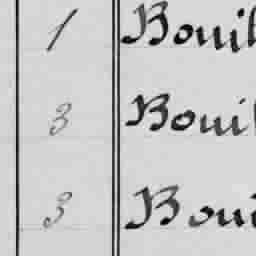 1 Bouil
3 Boui
3 Boui